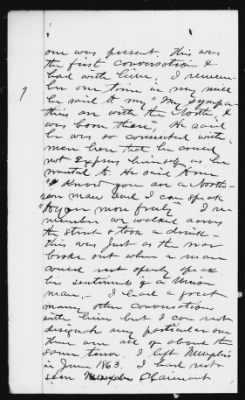 one was present. This was
the first conversation I
had with him. I remem-
ber one time in my mill
he said to me "My sympa-
thies are with the North, I
was born there," He said
he was so connected with
men here that he could
not express himself as he
wanted to. He said "Sam
"I know you are a North-
ern man and I can speak
to you more freely." I re-
member we walked across
the street & took a drink —
This was just as the war
broke out when a man
could not openly speak
his sentiments if a Union
man. — I had a great
many other conversations
with him but I can not
designate any particular one
they are all of about the
same tenor. I left Memphis
in June 1863. I had not
seen Claimant